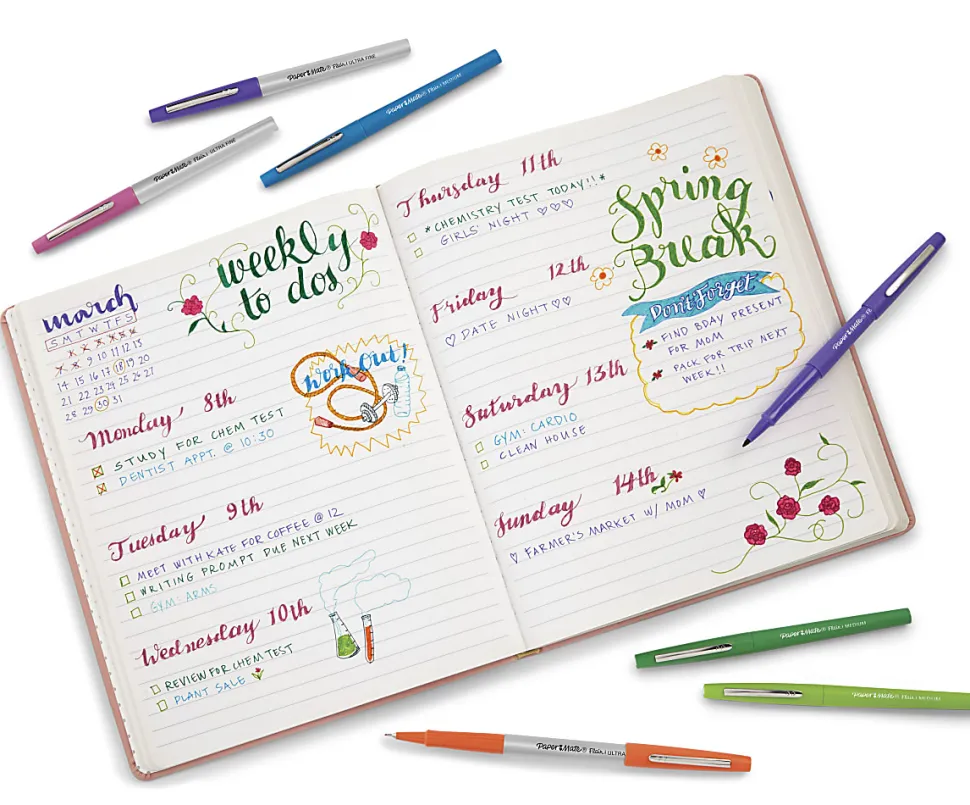 Paper Mate® Flair. ULTRA FINE
Paper Mate® Flair. MEDIUM
Paper Mate® Flair. ULTRA FINE
march
S M T W T F S
x x x x x x
x x 9 10 11 12 13
14 15 16 17 18 19 20
21 22 23 24 25 26 27
28 29 30 31
weekly
to dos
Monday 8th
STUDY FOR CHEM TEST
DENTIST APPT. @ 10:30
Work Out!
Tuesday 9th
MEET WITH KATE FOR COFFEE @ 12
WRITING PROMPT DUE NEXT WEEK
GYM: ARMS
Wednesday 10th
REVIEW FOR CHEM TEST
PLANT SALE
Thursday 11th
*CHEMISTRY TEST TODAY!!*
GIRLS' NIGHT ♡♡♡
Friday 12th
♡ DATE NIGHT ♡♡
Saturday 13th
GYM: CARDIO
CLEAN HOUSE
Sunday 14th
♡ FARMER'S MARKET W/ MOM ♡
Spring
Break
Don't Forget
FIND BDAY PRESENT
FOR MOM
PACK FOR TRIP NEXT
WEEK!!
Paper Mate®
Paper Mate® Flair. MEDIUM
Paper Mate® Flair. MEDIUM
Paper Mate® Flair. ULTRA